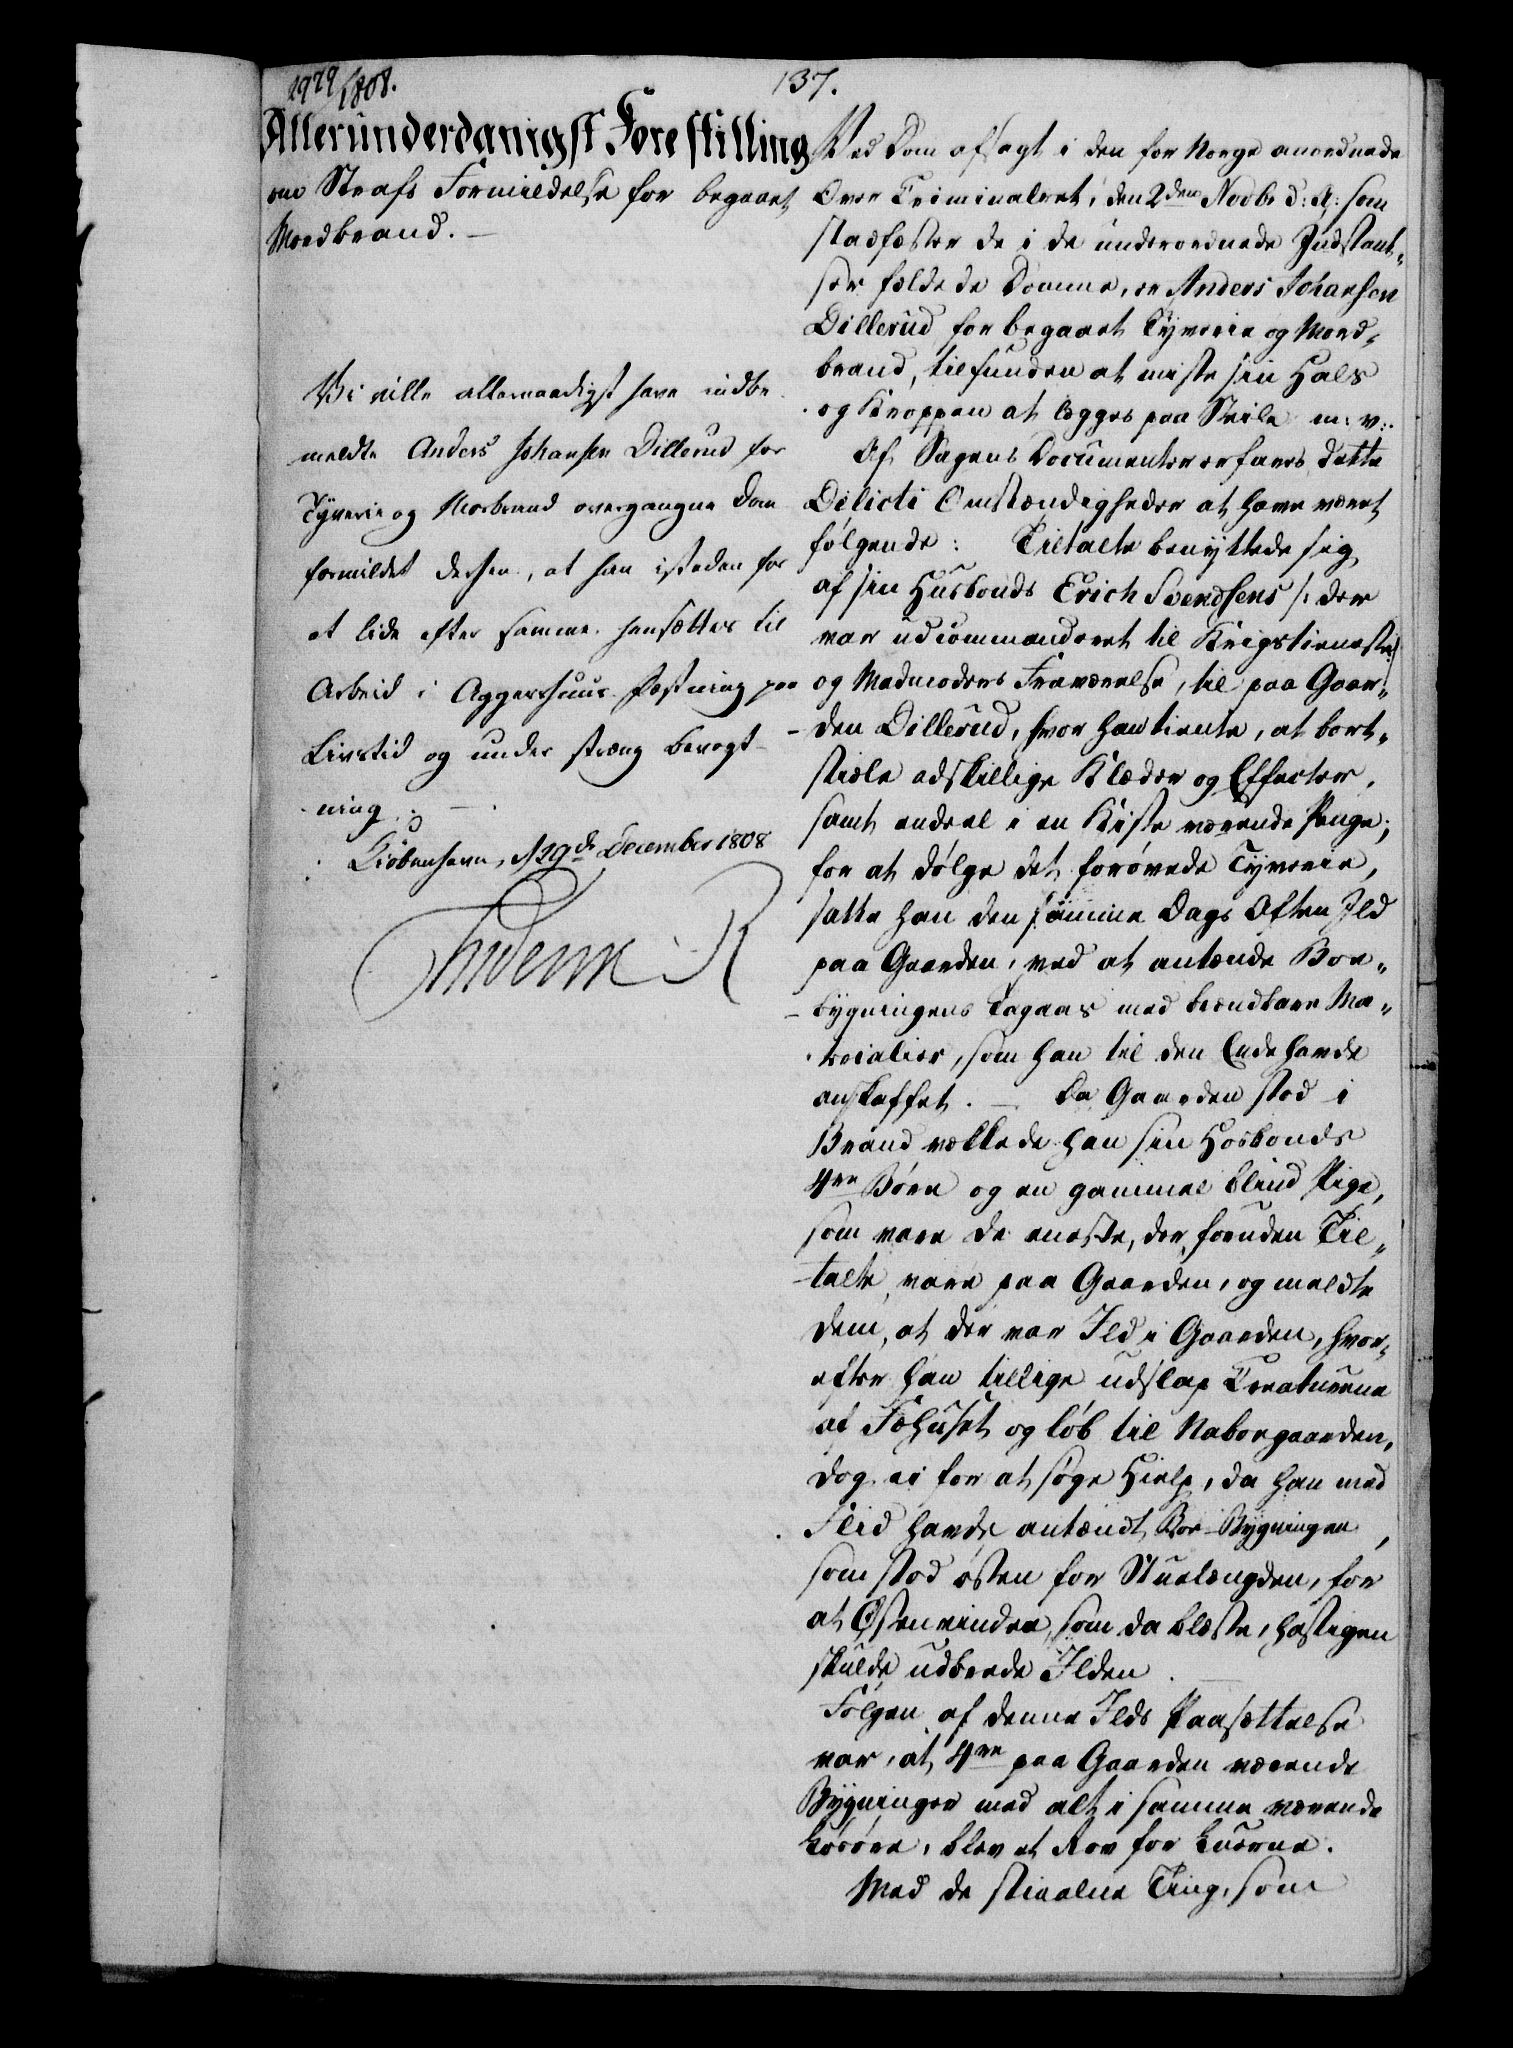 2979/1808.
137.
Allerunderdanigst Forestilling
om Strafs Formildelse for begaaet
Mordbrand. —
Vi ville allernaadigst have indbe
meldte Anders Johansen Dillerud for
Tyverie og Morbrand overgangne Dom
formildet derhen, at han isteden for
at lide efter samme hensættes til
Arbeid i Aggershuus Fæstning paa
Livstid og under stræng Bevogt-
ning. —
Kiøbenhavn, d 29de December 1808
Frideric R
Ved Dom afsagt i den for Norge anordnede
Over Criminalret, den 2den Novbr d: A: som
stadfæster de i de underordnede Indstant„
ser fældede Domme, er Anders Johansen
Dillerud for begaaet Tyverie og Mord„
brand, tilfunden at miste sin Hals
og Kroppen at legges paa Steile m: v:.
Af Sagens Documenter erfares dette
Delicti Omstændigheder at have været
følgende: Tiltalte benyttede sig
af sin Husbonds Erich Svendsens /: der
var udcommanderet til Krigstieneste :/
og Madmoders Fraværelse, til paa Gaar„
den Dillerud, hvor han tiente, at bort„
stiæle adskillige Klæder og Effecter,
samt endeel i en Kiste værende Penge;
for at dølge det forøvede Tyverie,
satte han den samme Dags Aften Ild
paa Gaarden, ved at antænde Boe„
bygningens Tagaas med brændbare Ma„
terialier, som han til den Ende havde
anskaffet. — Da Gaarden stod i
Brand vækkede han sin Hosbonds
4re Børn og en gammel blind Pige,
som vare de eneste, der, foruden Til„
talte, vare paa Gaarden, og meldte
dem, at der var Ild i Gaarden, hvor„
efter han tillige udslap Creaturene
af Fæhuset og løb til Naboegaarden,
dog ei for at søge Hielp, da han med
Flid havde antændt Boe-Bygningen,
som stod østen for Stuelængden, for
at Østenvinden, som da blæste, hastigen
skulde udbrede Ilden. —
Følgen af denne Ilds Paasættelse
var, at 4re paa Gaarden værende
Bygninger med alt i samme værende
Løsøre, blev et Rov for Luerne.
Med de stiaalne Ting, som